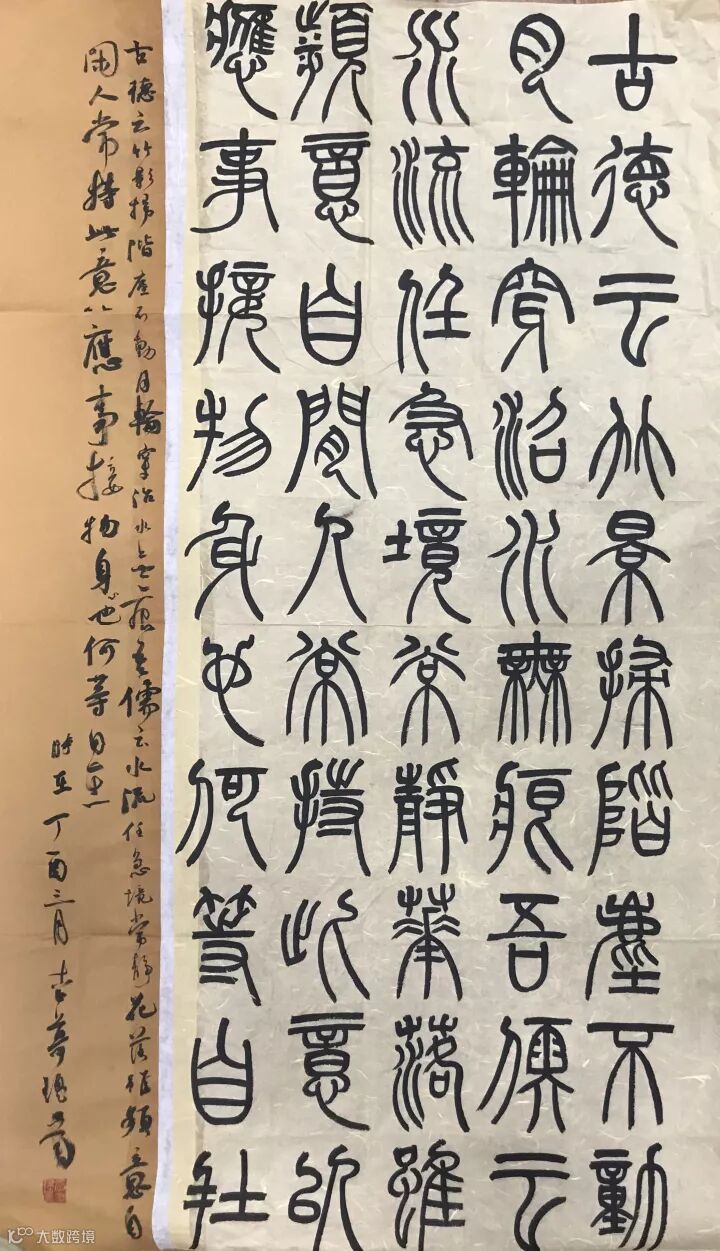 古德云竹景掃階塵不動
月輪穿沼水無痕吾儒云
水流任急境常靜華落雖
頻意自閒人常持此意以
應事接物身心何等自在
古德云竹影掃階塵不動月輪穿沼水无痕吾儒云水流任急境常靜花落雖頻意自
閑人常持此意以應事接物身心何等自在
時在丁酉三月
大数跨境